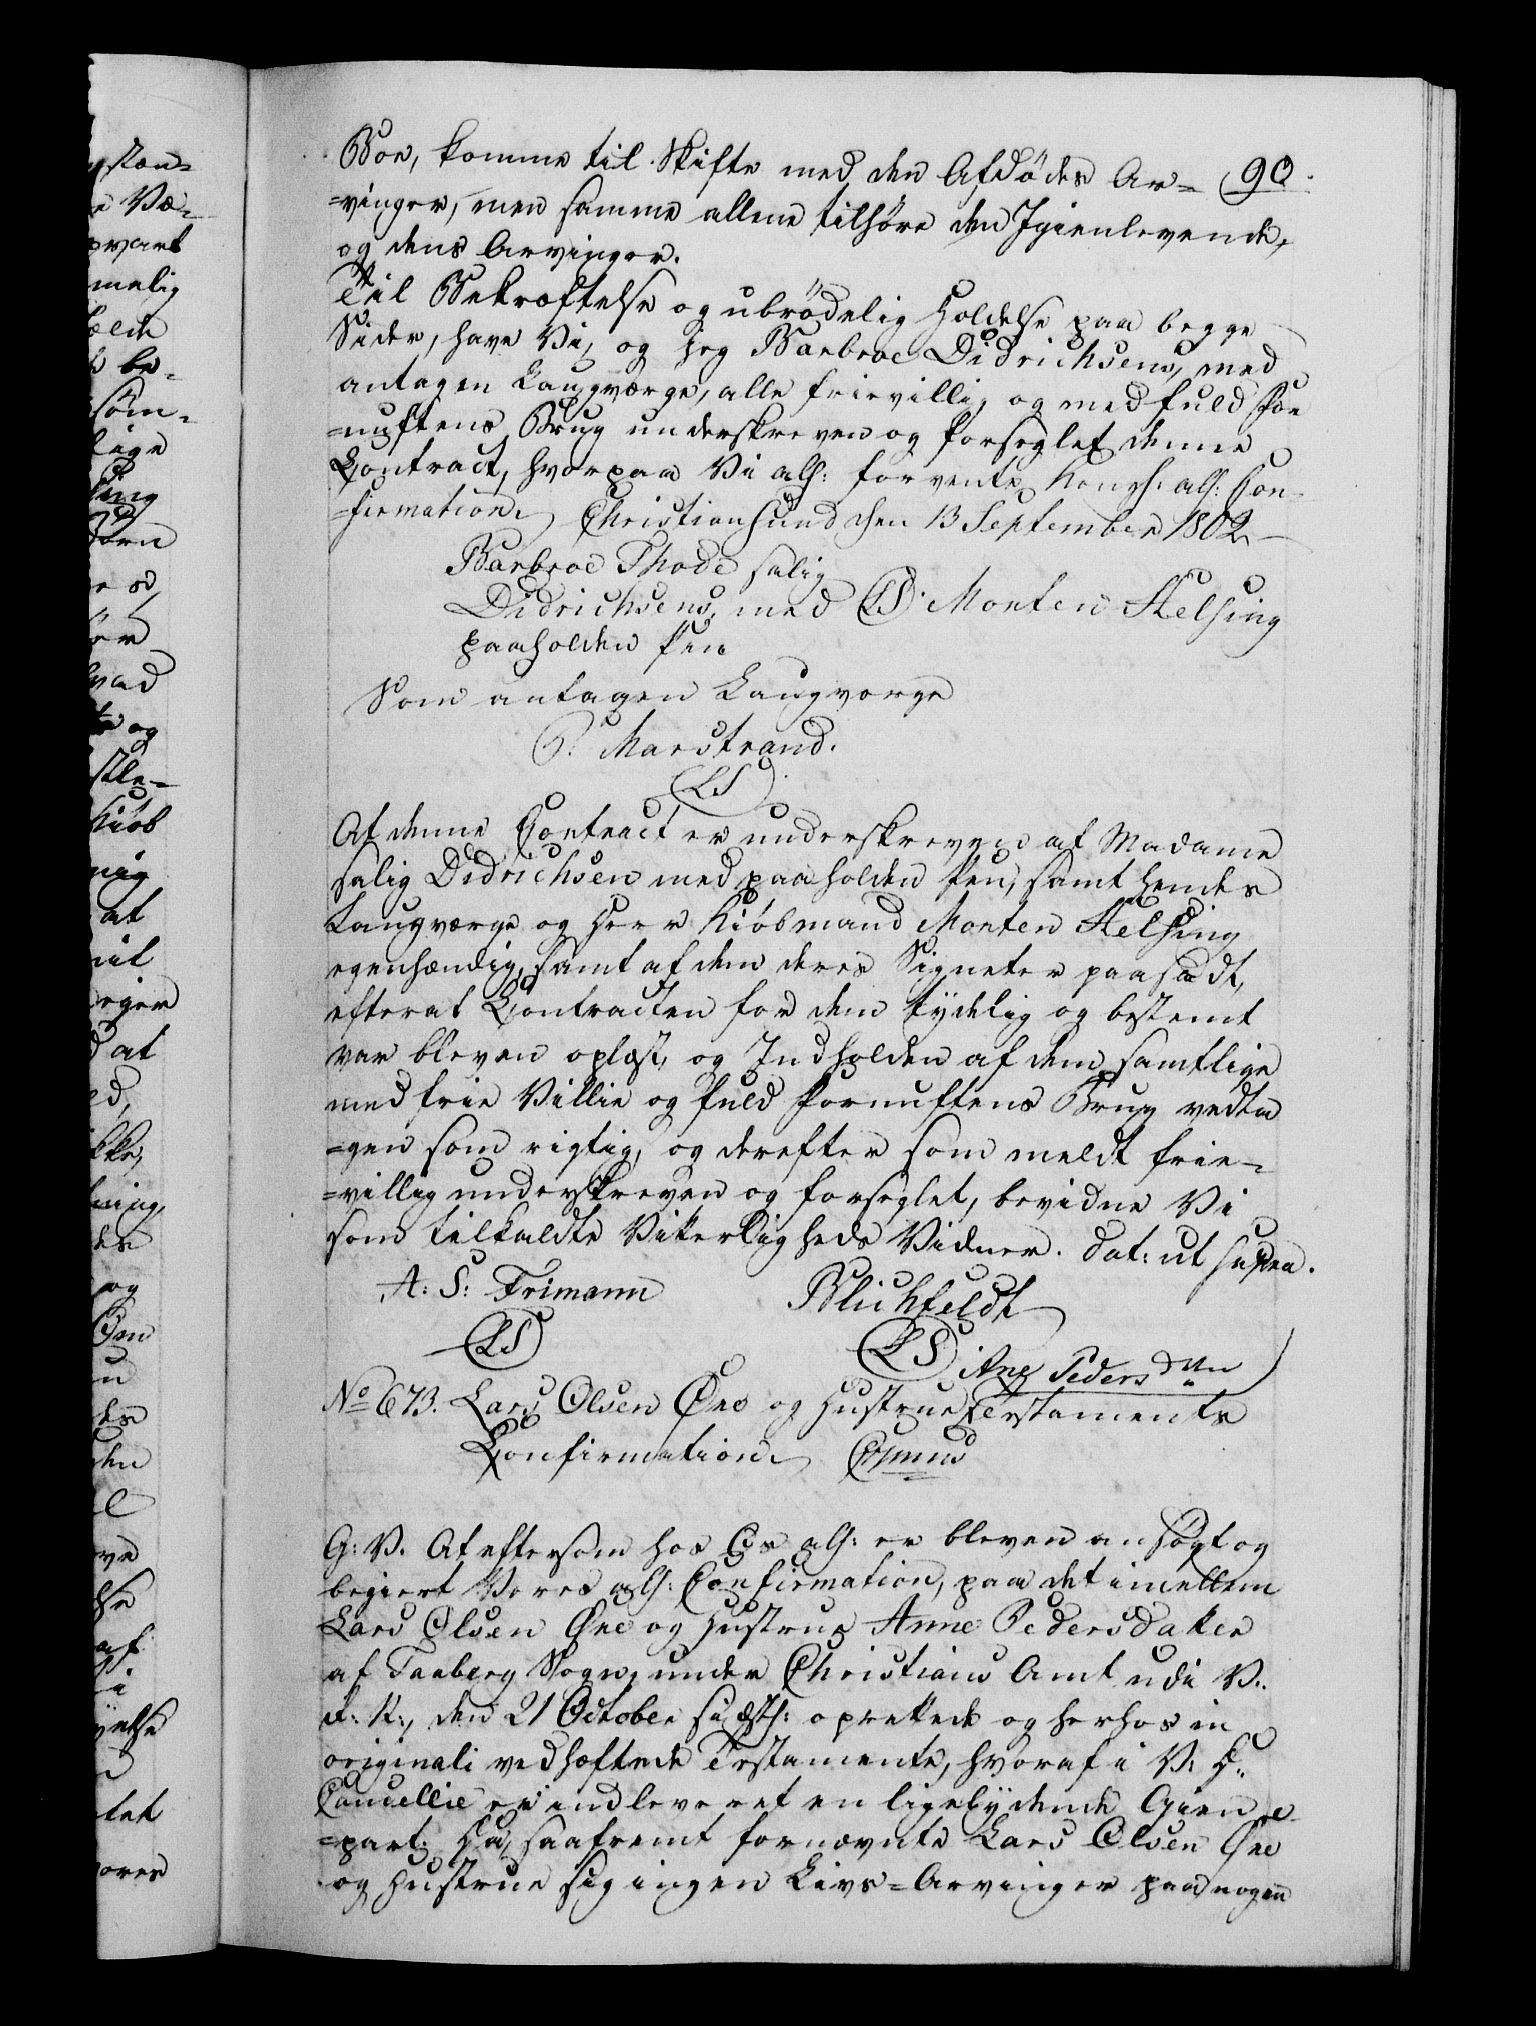 90.
Boe, komme til Skifte med den Afdødes Ar=
=vinger, men samme allene tilhøre den Igienlevende,
og dens Arvinger.
Til Bekræftelse og ubrødelig Holdelse paa begge
Sider, have Vi, og jeg Barbroe Didrichsens, med
antagen Laugværge, alle frievillig og med fuld For
=nuftens Brug underskreven og forseglet denne
Contract, hvorpaa Vi all: forvente Kongl: all: Con-
=firmation. Christiansund den 13 September 1802
Barbroe Thode salig
Didrichsens, med (LS). Morten Helsing
paaholden Pen
Som antagen Laugværge
P. Marstrand.
(LS)
At denne Contract er underskreven af Madame
salig Didrichsen med paaholden Pen, samt hendes
Laugværge og Herr Kiöbmand Morten Helsing
egenhændig, samt af dem deres Signeter paasadt,
efterat Contracten for dem tydelig og bestemt
var bleven oplæst, og Indholden af dem samtlige
med frie Villie og fuld Fornuftens Brug vedta
=gen som rigtig, og derefter som meldt frie-
=villig underskreven og forseglet, bevidne Vi
som tilkaldte Vitterligheds Vidner. Dat: ut supra.
A: S: Frimann Blichfeldt
(LS) (LS)
Ane Pedersdttr
No 673. Lars Olsen Øne og Hustrue Testaments
Confirmation
G: V. At eftersom hos Os all: er bleven ansøgt og
begiert Vores all: Confirmation, paa det imellem
Lars Olsen Øne og Hustrue Anne Pedersdatter
af Faaberg Sogn, under Christians Amt udi V.
R: N:, den 21 October sidstl: oprettede og herhos in
originali vedhæftede Testamente, hvoraf i V. D.
Cancellie er indleveret en ligelydende Gien
=part; Da, saafremt fornævnte Lars Olsen Øne
og Hustrue sig ingen Livs=Arvinger paa nogen